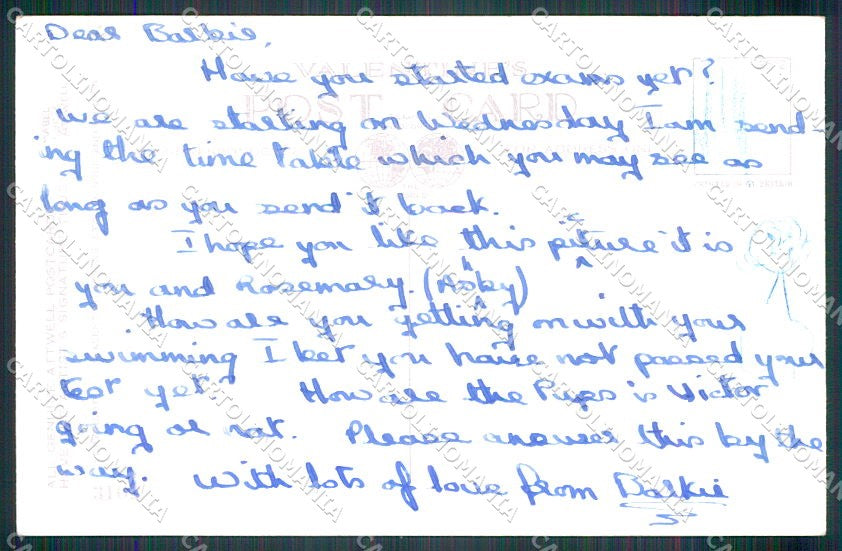 Dear Balkie,
Have you started exams yet?
we are starting on Wednesday I am send-
ing the time table which you may see as
long as you send it back.
I hope you like this picture it is
you and Rosemary. (Ashby)
How are you getting on with your
swimming I bet you have not passed your
test yet? How are the Pups is Victor
going or not. Please answer this by the
way. With lots of love from Balkie
VALENTINE'S
POST CARD
CARTOLINOMANIA